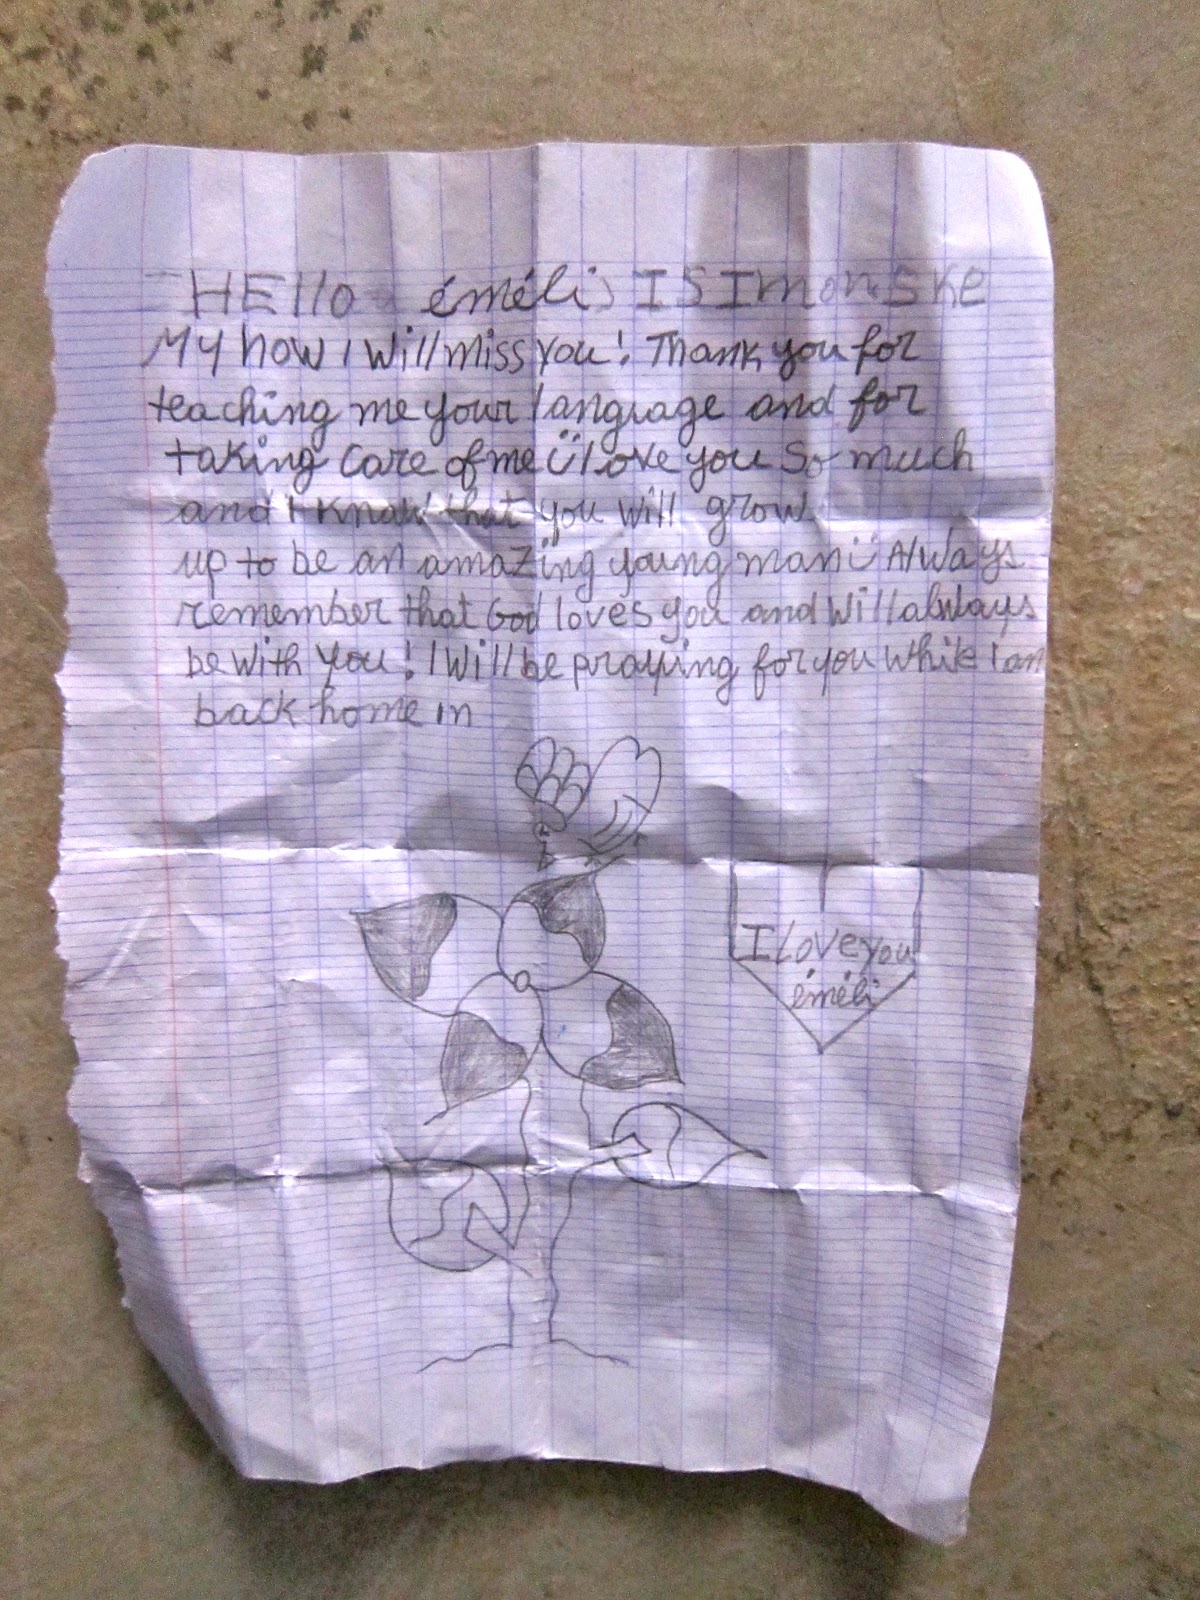 HEllo éméli ISImonske
My how I will miss you! Thank you for
teaching me your language and for
taking care of me Ü I love you so much
and I know that you will grow
up to be an amazing young man Ü Always
remember that God loves you and will always
be with you! I will be praying for you while I am
back home in
I love you
éméli